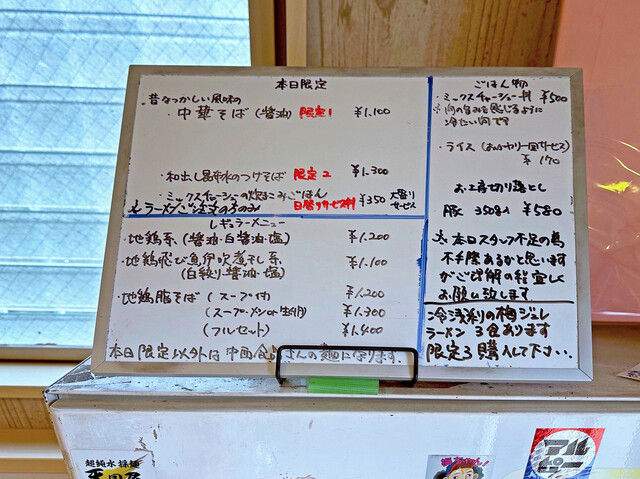 本日限定
昔なつかしい風味の
・中華そば(醤油) 限定1 ¥1,100
・和出し昆布水のつけそば 限定2 ¥1,300
・ミックスチャーシューの炊きこみごはん
日替りサービス丼 ¥350 大盛り
サービス
ラーメンご注文の方のみ
レギュラーメニュー
・地鶏系(醤油・白醤油・塩) ¥1,200
・地鶏飛び魚伊吹煮干し系 ¥1,100
(白絞り醤油・塩)
・地鶏脂そば(スープ付) ¥1,200
(スープ・メンのせ付) ¥1,300
(フルセット) ¥1,400
本日限定以外は中西食 さんの麺になります。
ごはん物
・ミックスチャーシュー丼 ¥500
※肉の旨みを感じるように
冷たい肉です
・ライス(おかわり一回サービス)
¥170
お土産切り落とし
豚 350g入 ¥580
本日スタッフ不足の為
不手際あるかと思います
がご理解の程宜しく
お願い致します
冷 梅ジュレ
ラーメン 3食あります
限定3購入して下さい。
超純水採麺
アル
ピー